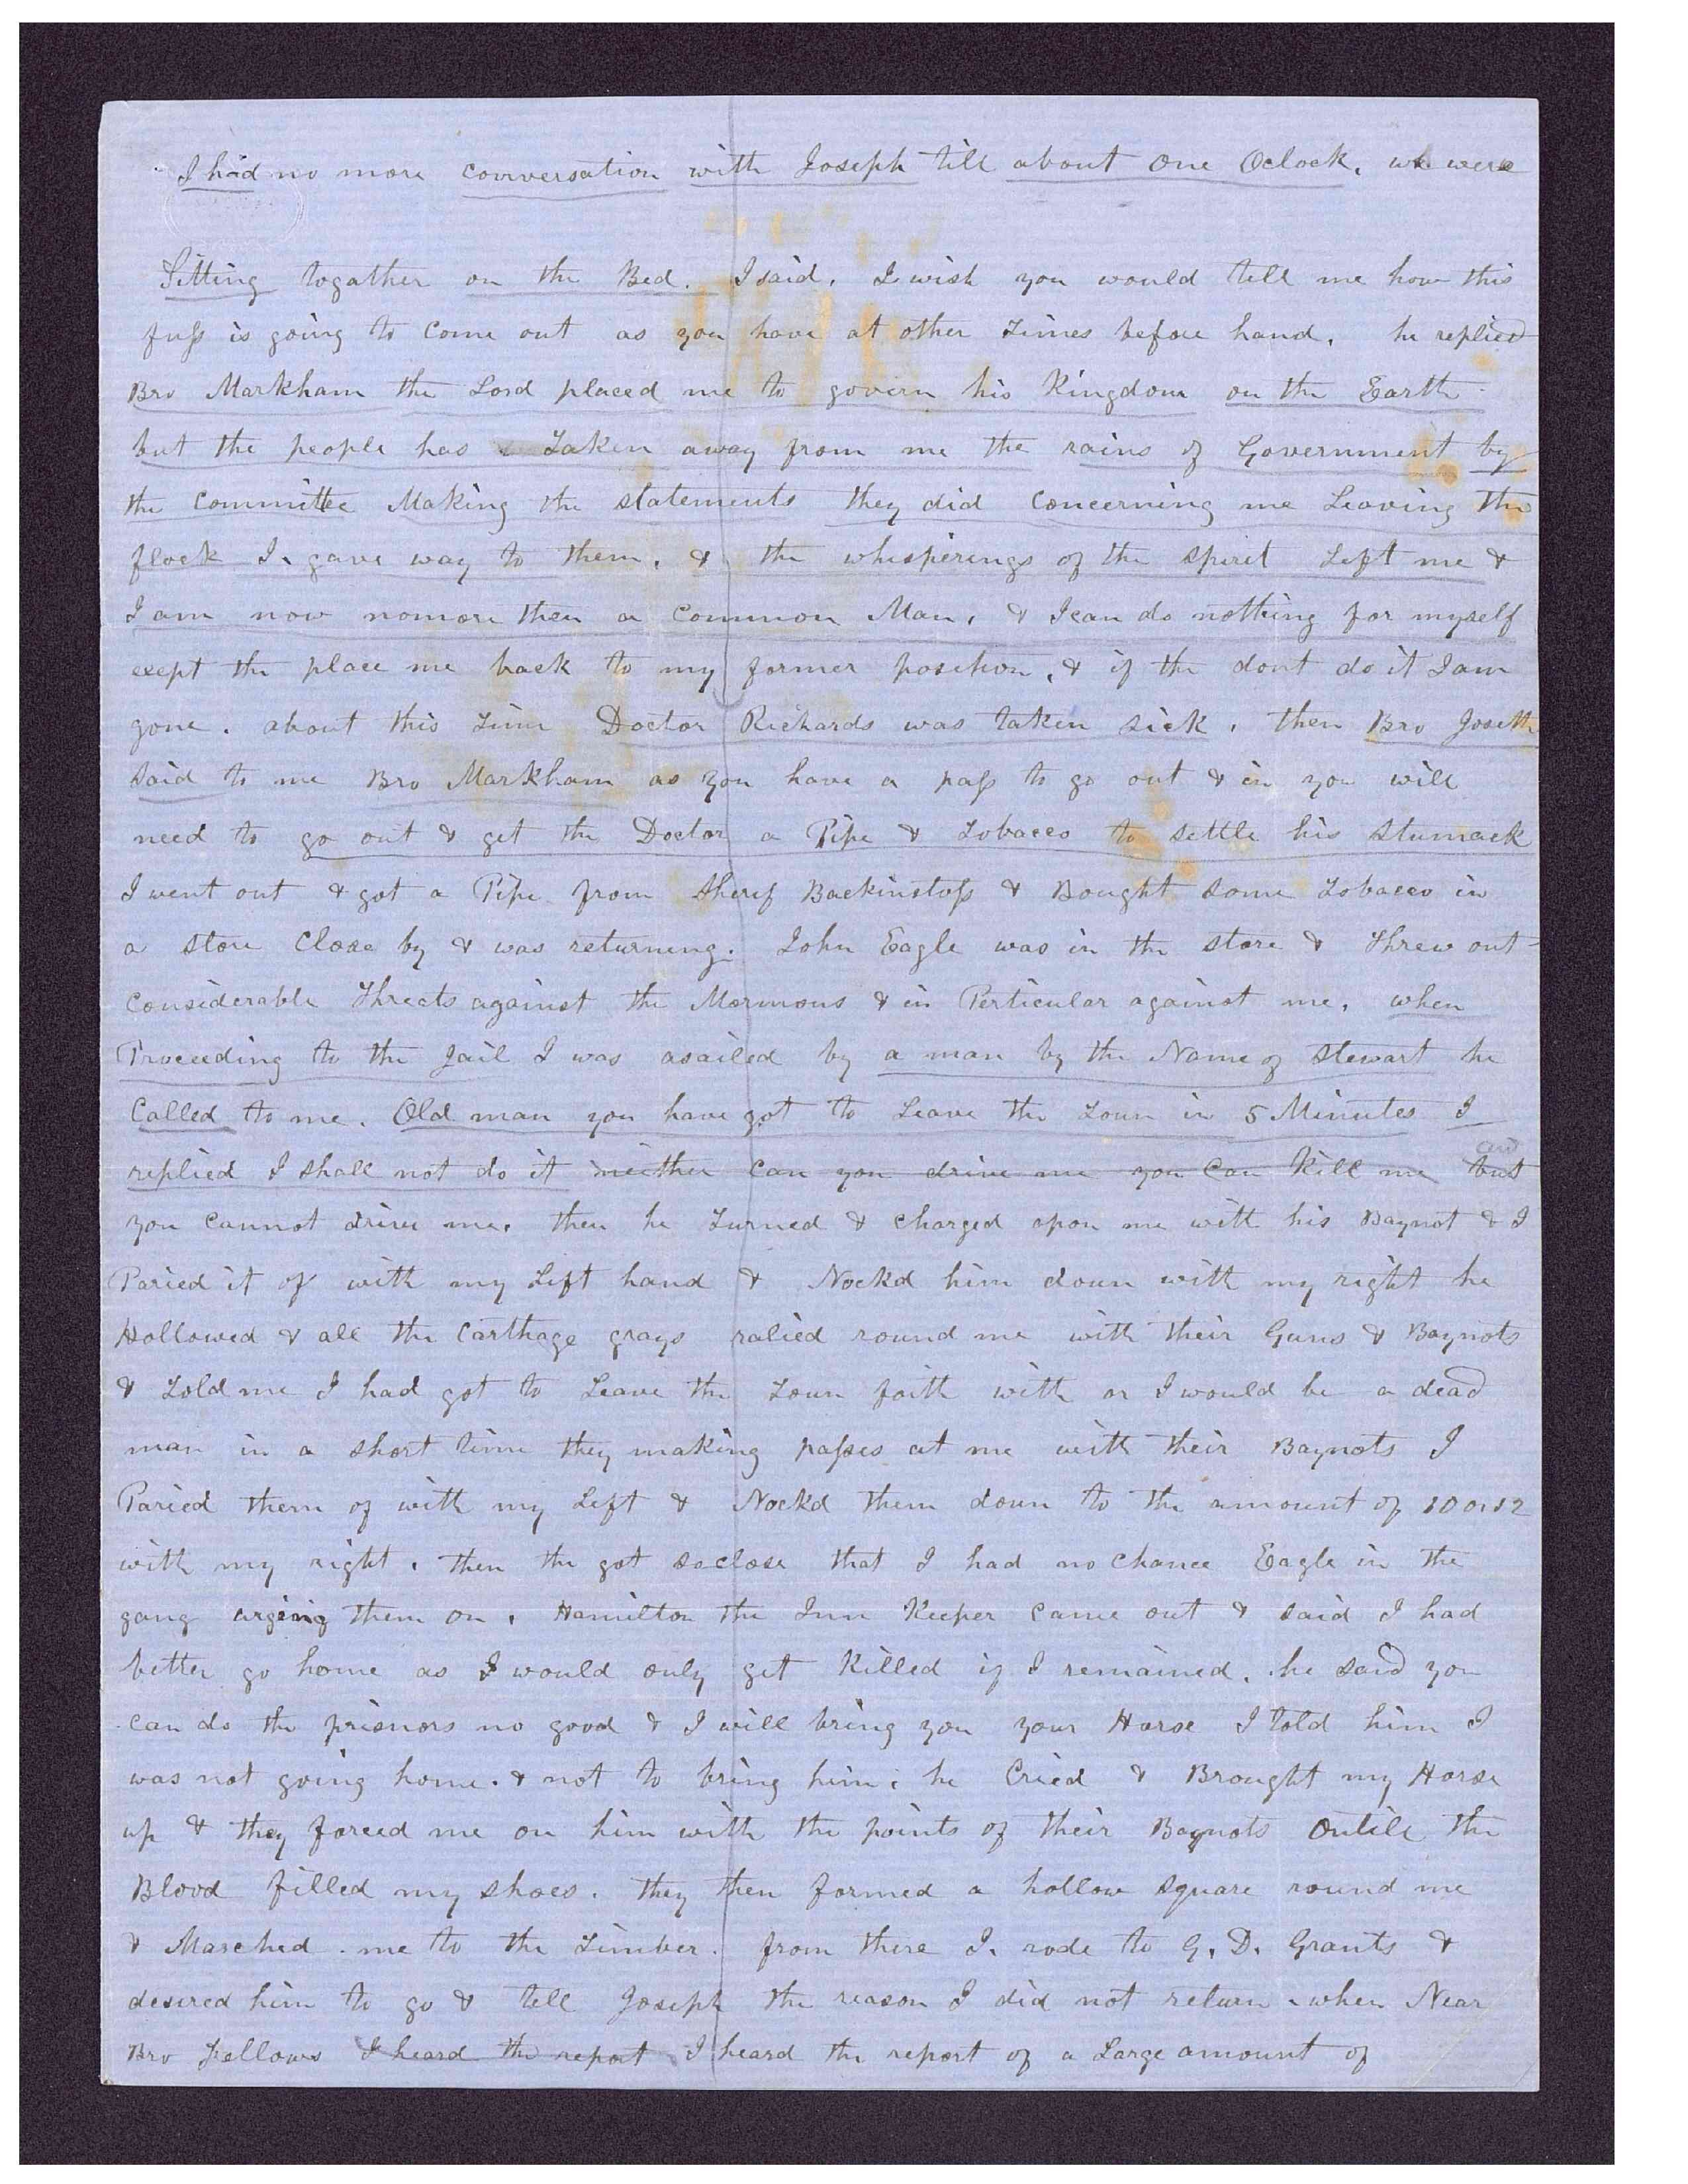 I had no more conversation with Joseph till about one Oclock. we were
Sitting togather on the Bed. I said. I wish you would tell me how this
fuss is going to come out as you have at other Times before hand. he replied
Bro Markham the Lord placed me to govern his Kingdom on the Earth
but the people has Taken away from me the rains of Government by
the Committee Making the statements they did concerning me Leaving the
flock I gave way to them, & the whisperings of the spirit Left me &
I am now nomore then a common Man, & I can do nothing for myself
exept the place me back to my former position, & if the dont do it I am
gone. about this Time Doctor Richards was taken sick, then Bro Joseth
said to me Bro Markham as you have a pass to go out & in you will
need to go out & get the Doctor a Pipe & Tobacco to settle his stumack
I went out & got a Pipe from Sherif Backinstoss & Bought some Tobacco in
a store close by & was returning. John Eagle was in the store & Threw out
considerable Threats against the Mormons & in Perticular against me, when
Proceeding to the Jail I was asailed by a man by the Name of Stewart he
Called to me. Old man you have got to Leave the Town in 5 Minutes I
replied I shall not do it neither can you drive me you can kill me but and
you cannot drive me. then he Turned & charged opon me with his Baynot & I
Paried it of with my Left hand & Nockd him down with my right he
Hollowed & all the Carthage grays ralied round me with their Guns & Baynots
& Told me I had got to Leave the Town faith with or I would be a dead
man in a short time they making passes at me with their Baynots I
Paried them of with my Left & Nockd them down to the amount of 10 or 12
with my right. then the got soclose that I had no chance Eagle in the
gang urgeing them on, Hamilton the Inn Keeper came out & said I had
better go home as I would only get Killed if I remained. he said you
can do the prisnors no good & I will bring you your Horse I told him I
was not going home. & not to bring him: he Cried & Brought my Horse
up & they forced me on him with the points of their Baynots Ontill the
Blood filled my shoes. they then formed a hollow square round me
& Marched me to the Timber. from there I rode to G. D. Grants &
desired him to go & tell Joseph the reason I did not return when Near
Bro Fellows I heard the report I heard the report of a Large amount of